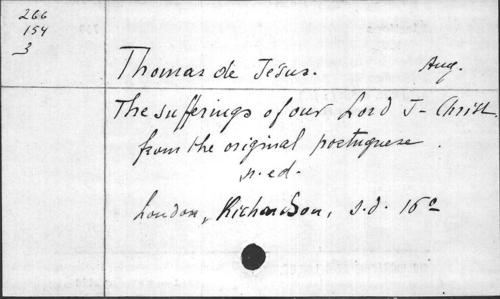 266
154
3
Thomas de Jésus. Aug.
The sufferings of our Lord J- Christ.
from the original portuguese.
n. ed.
London, Richardson, s.d. 16º